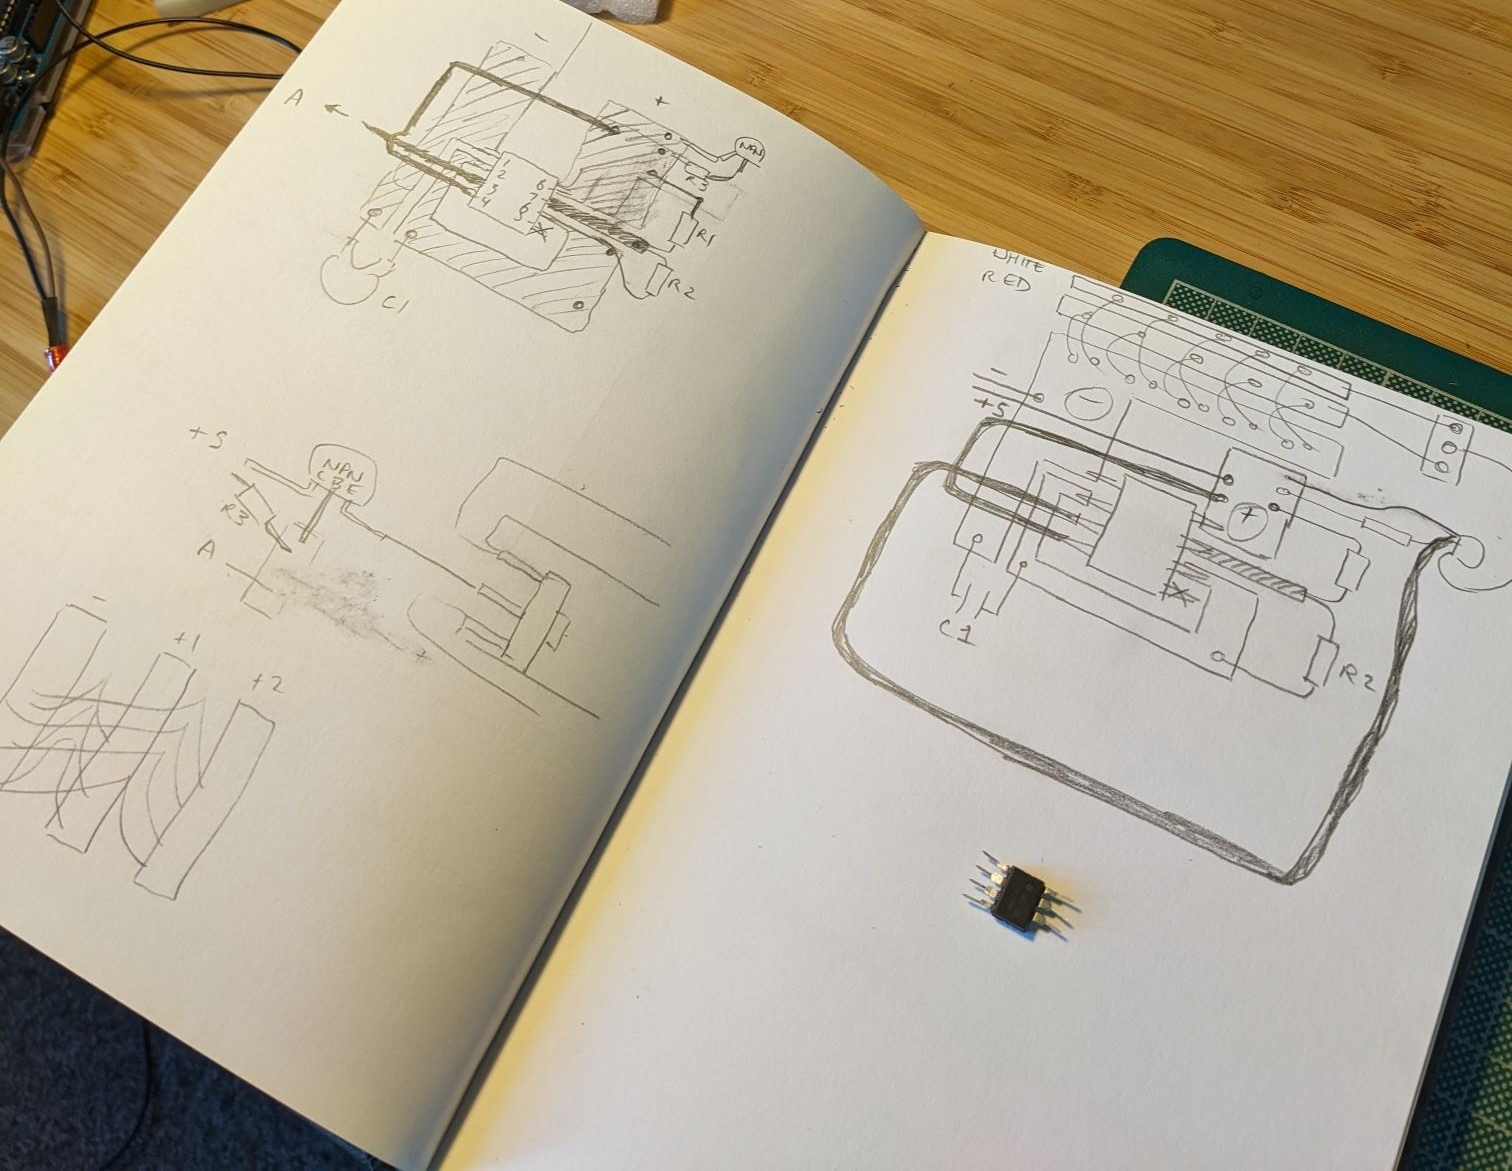 -
+
A
NPN
R3
1
2
3
4
6
7
8
5
R1
R2
C1
+5
NPN
CBE
R3
A
-
+1
+2
WHITE
RED
-
+5
-
+
C1
R2